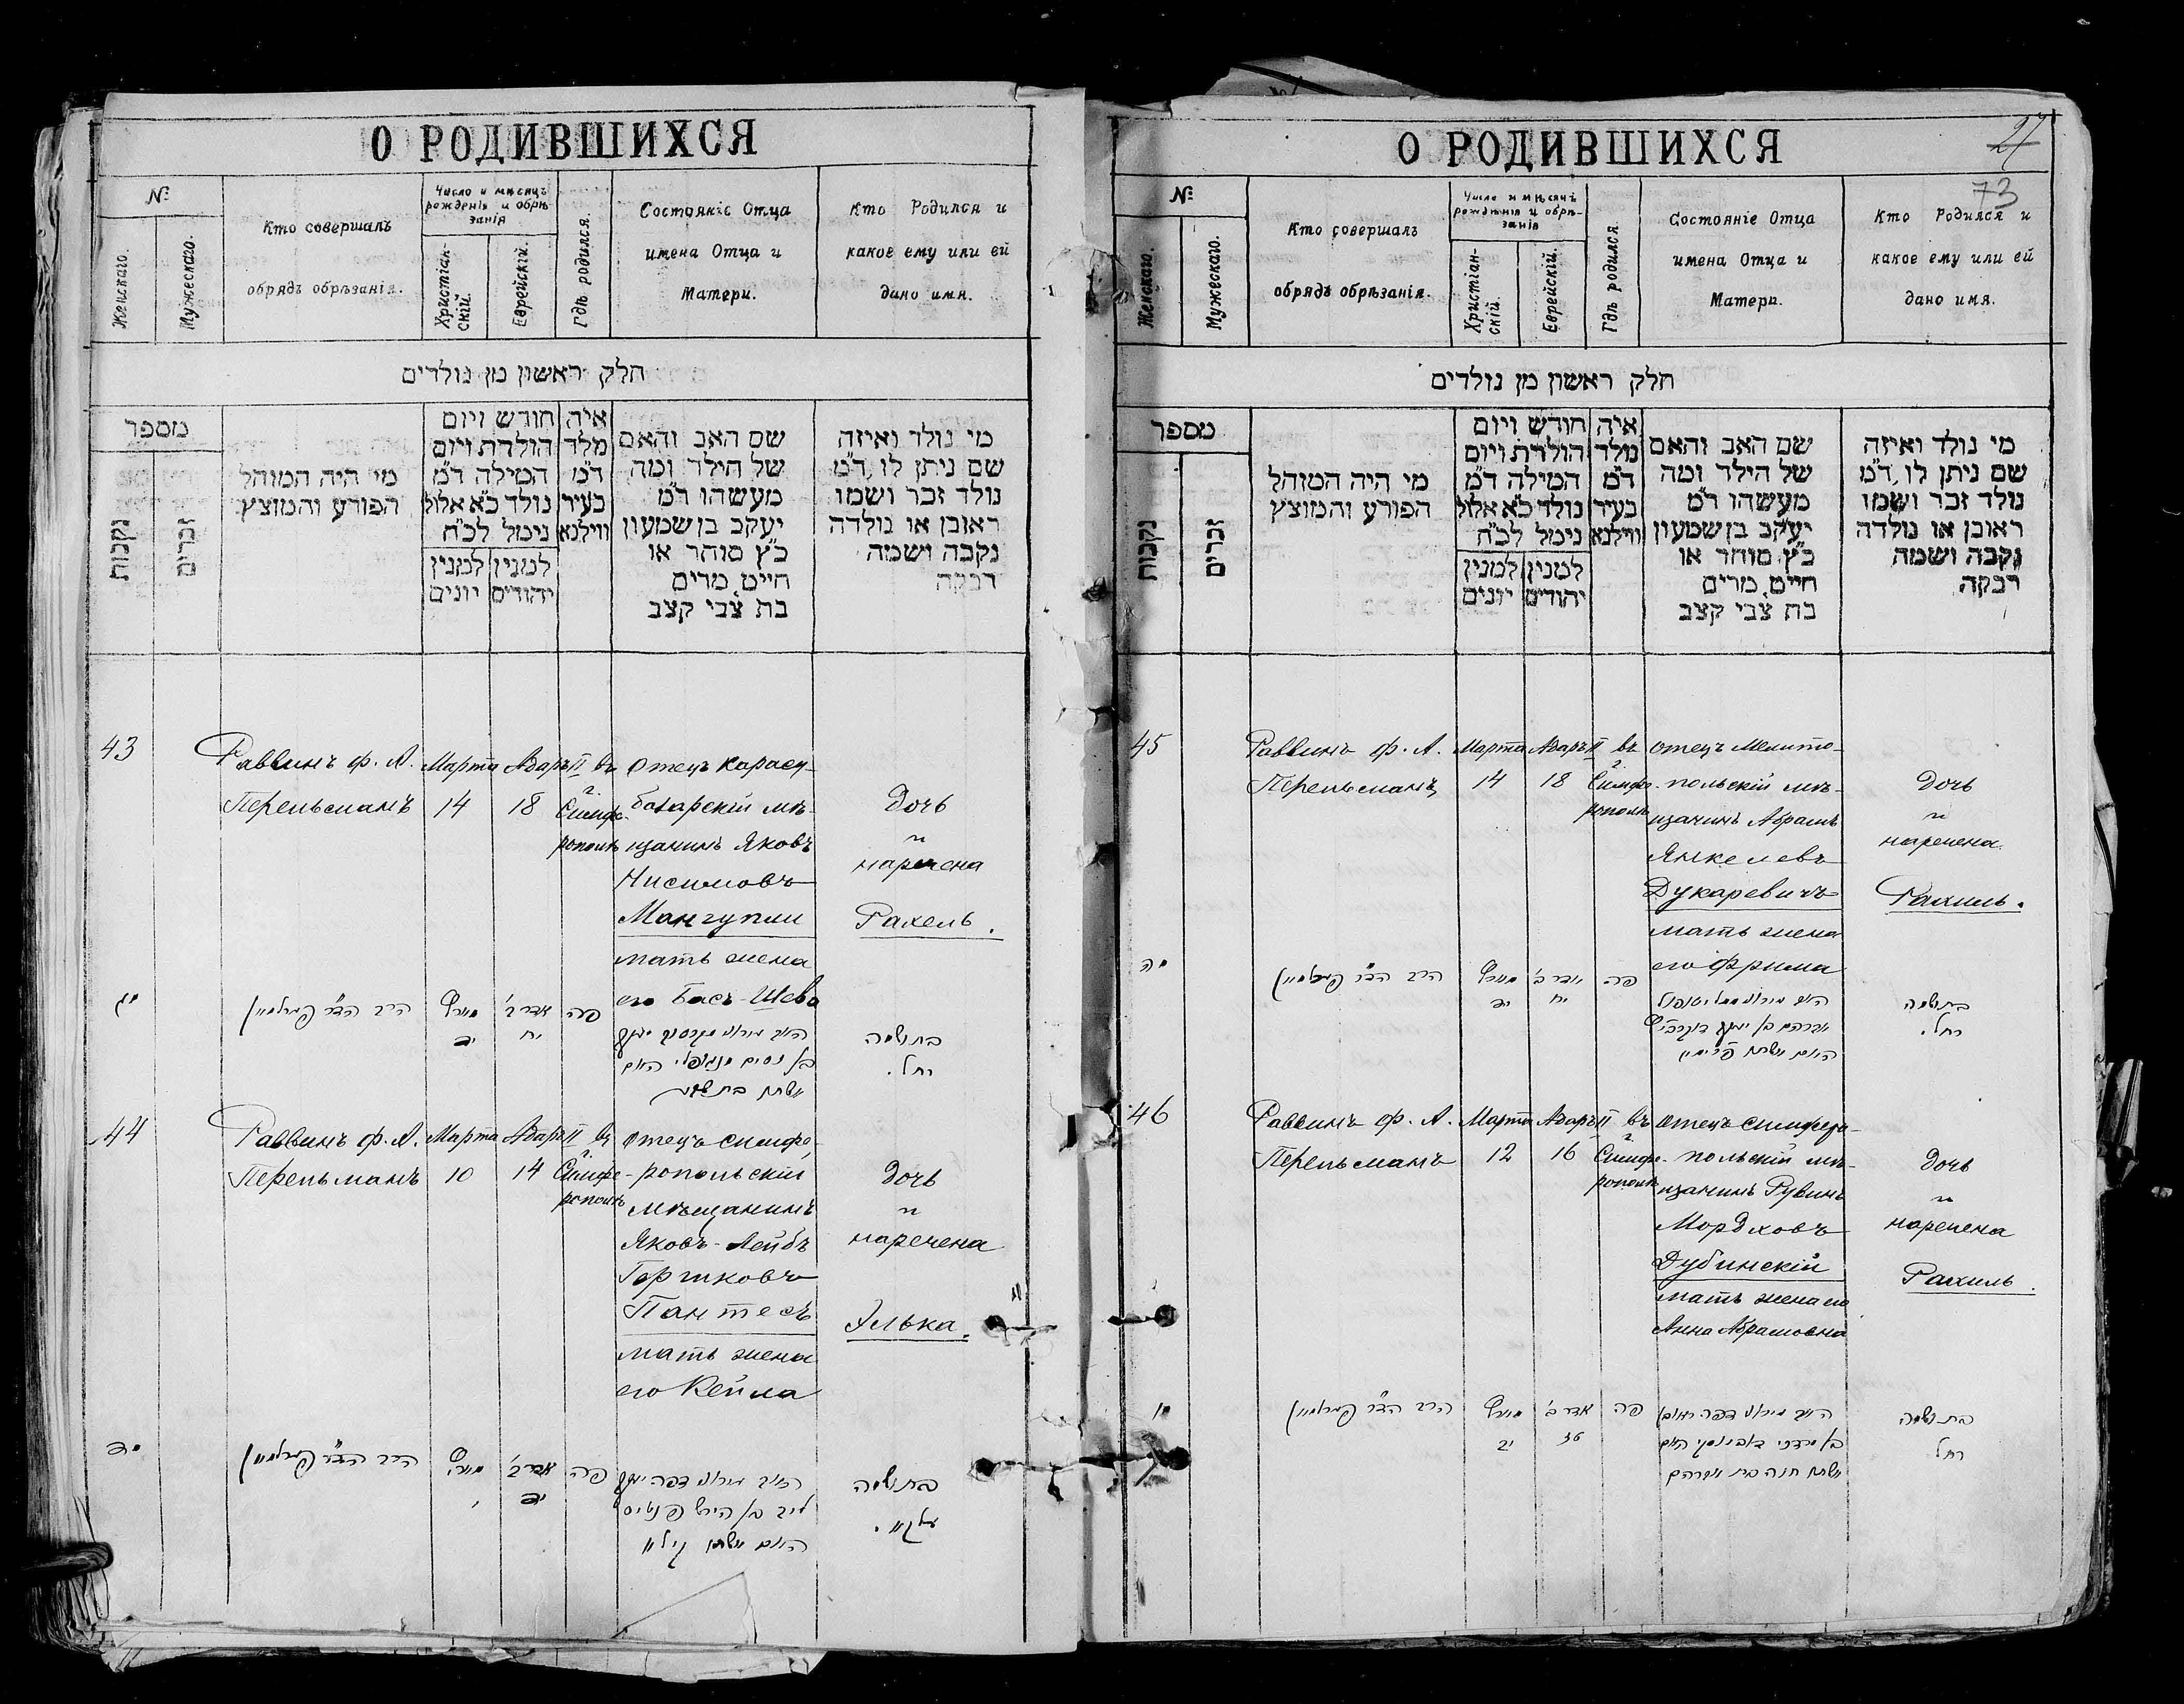 О РОДИВШИХСЯ
№
Женскаго.
Мужескаго.
Кто совершалъ
обрядъ обрѣзанія.
Число и мѣсяцъ
рожденія и обрѣ-
занія
Христіан-
скій.
Еврейскій.
Гдѣ родился.
Состояніе Отца
имена Отца и
Матери.
Кто Родился и
какое ему или ей
дано имя.
חלק ראשון מן נולדים
מספר
נקבות
זכרים
מי היה המוהל
הפורע והמוצץ
חודש ויום
הולדת ויום
המילה ד"מ
נולד כ"א אלול
נימל לכ"ח
למנין למנין
יהודים יונים
איה
מלד
ד"מ
בעיר
ווילנא
שם האב והאם
של הילד ומה
מעשהו ד"מ
יעקב בן שמעון
כ"ץ סוחר או
חייט, מרים
בת צבי קצב
מי נולד ואיזה
שם ניתן לו, ד"מ
נולד זכר ושמו
ראובן או נולדה
נקבה ושמה
רבקה
43
Раввинъ ф. А.
Перельманъ
Марта
14
Адаръ II
18
въ
г.
Симфе-
рополѣ
отецъ Карасу-
базарскій мѣ-
щанинъ Яковъ
Нисимовъ
Мангупли
мать жена
его Басъ-Шева
Дочь
и
наречена
Рахель.
יג
הרב הד"ר פערלמאן
מערץ
יד
אדר ב'
יח
פה
בת ושמה
רחל.
44
Раввинъ ф. А.
Перельманъ
Марта
10
Адаръ II
14
въ
г.
Симфе-
рополѣ
отецъ симфе-
ропольскій
мѣщанинъ
Яковъ-Лейбъ
Гершковъ
Пантесъ
мать жена
его Кейла
Дочь
и
наречена
Элька.
יד
הרב הד"ר פערלמאן
מערץ
י
אדר ב'
יד
פה
בת ושמה
עלקא.
О РОДИВШИХСЯ
27
73
№
Женскаго.
Мужескаго.
Кто совершалъ
обрядъ обрѣзанія.
Число и мѣсяцъ
рожденія и обрѣ-
занія
Христіан-
скій.
Еврейскій.
Гдѣ родился.
Состояніе Отца
имена Отца и
Матери.
Кто Родился и
какое ему или ей
дано имя.
חלק ראשון מן נולדים
מספר
נקבות
זכרים
מי היה המוהל
הפורע והמוצץ
חודש ויום
הולדת ויום
המילה ד"מ
נולד כ"א אלול
נימל לכ"ח
למנין למנין
יהודים יונים
איה
מלד
ד"מ
בעיר
ווילנא
שם האב והאם
של הילד ומה
מעשהו ד"מ
יעקב בן שמעון
כ"ץ סוחר או
חייט, מרים
בת צבי קצב
מי נולד ואיזה
שם ניתן לו, ד"מ
נולד זכר ושמו
ראובן או נולדה
נקבה ושמה
רבקה
45
Раввинъ ф. А.
Перельманъ
Марта
14
Адаръ II
18
въ
г.
Симфе-
рополѣ
отецъ Мелито-
польскій мѣ-
щанинъ Абрамъ
Янкелевъ
Дукаревичъ
мать жена
его Фрима
Дочь
и
наречена
Рахиль.
הרב הד"ר פערלמאן
מערץ
יד
אדר ב'
יח
פה
בת ושמה
רחל.
46
Раввинъ ф. А.
Перельманъ
Марта
12
Адаръ II
16
въ
г.
Симфе-
рополѣ
отецъ симферо-
польскій мѣ-
щанинъ Рувинъ
Мордховъ
Дубинскій
мать жена его
Анна Абрамовна
Дочь
и
наречена
Рахиль.
הרב הד"ר פערלמאן
מערץ
יב
אדר ב'
טז
פה
בן מרדכי דובינסקי האם
אשתו חנה בת אברהם
בת ושמה
רחל